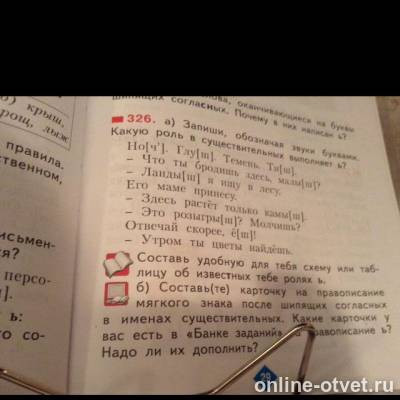 б) крыш,
рощ, лыж
правила.
ственном,
исьмен-
я?
персо-
].
ь:
го со-
лова, оканчивающиеся на буквы
шипящих согласных. Почему в них написан ь?
326. а) Запиши, обозначая звуки буквами.
Какую роль в существительных выполняет ь?
Но[ч']. Глу[ш]. Темень. Ти[ш].
– Что ты бродишь здесь, малы[ш]?
– Ланды[ш] я ищу в лесу.
Его маме принесу.
– Здесь растёт только камы[ш].
– Это розыгры[ш]? Молчишь?
Отвечай скорее, ё[ш]!
– Утром ты цветы найдёшь.
Составь удобную для тебя схему или таб-
лицу об известных тебе ролях ь.
б) Составь(те) карточку на правописание
мягкого знака после шипящих согласных
в именах существительных. Какие карточки у
вас есть в «Банке заданий» на правописание ь?
Надо ли их дополнить?
29
online-otvet.ru